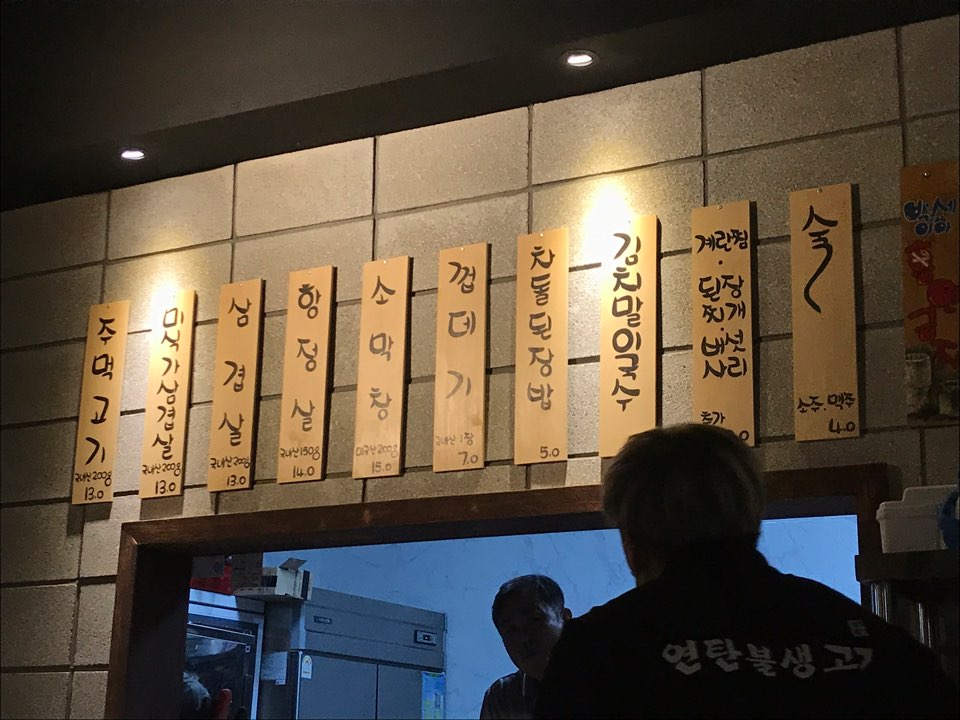 주먹고기
국내산 200g
13.0
미삭가삼겹살
국내산 200g
13.0
삼겹살
국내산 200g
13.0
항정살
국내산 150g
14.0
소막창
미국산 200g
15.0
껍데기
국내산 1장
7.0
차돌된장밥
5.0
김치말이국수
계란찜
·된장찌개
·버섯사리
추가
술
소주·맥주
4.0
박세
이아
연탄불생고기